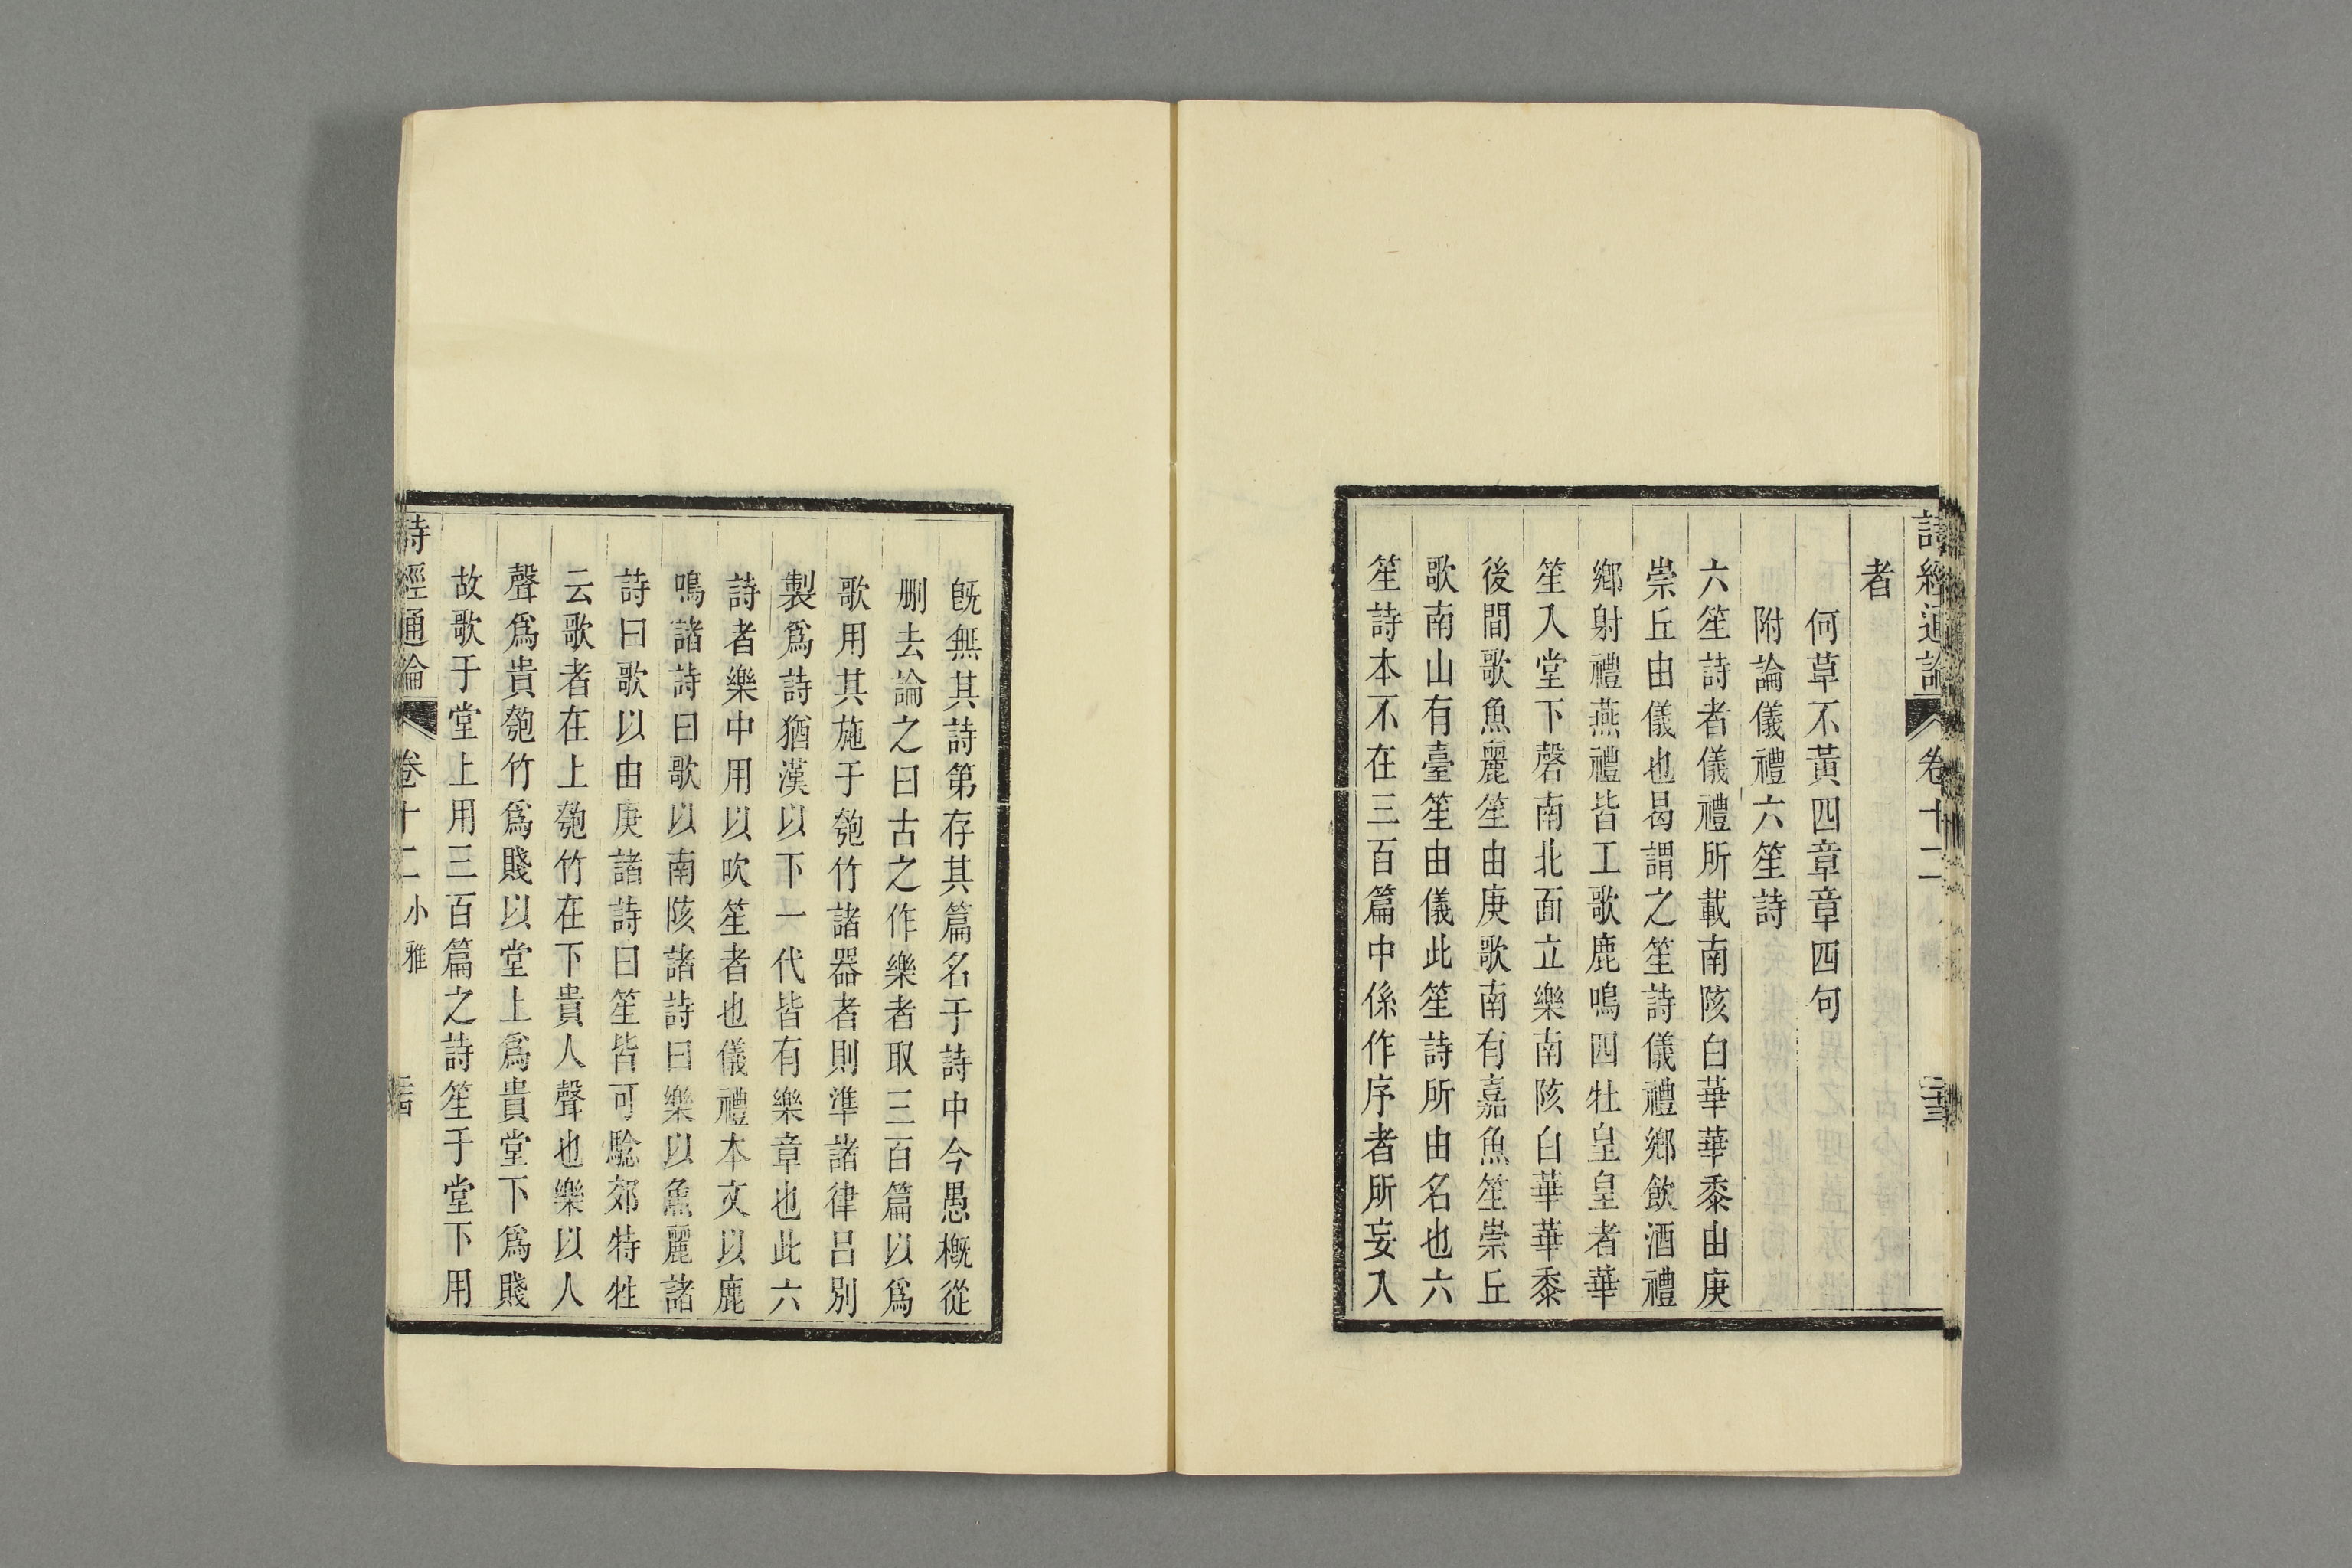 詩經通論 卷十二
者
何草不黃四章章四句
附論儀禮六笙詩
六笙詩者儀禮所載南陔白華華黍由庚
崇丘由儀也曷謂之笙詩儀禮鄉飲酒禮
鄉射禮燕禮皆工歌鹿鳴四牡皇皇者華
笙入堂下磬南北面立樂南陔白華華黍
後間歌魚麗笙由庚歌南有嘉魚笙崇丘
歌南山有臺笙由儀此笙詩所由名也六
笙詩本不在三百篇中係作序者所妄入
旣無其詩第存其篇名于詩中今愚槪從
删去論之曰古之作樂者取三百篇以爲
歌用其施于匏竹諸器者則準諸律呂別
製爲詩猶漢以下一代皆有樂章也此六
詩者樂中用以吹笙者也儀禮本文以鹿
鳴諸詩曰歌以南陔諸詩曰樂以魚麗諸
詩曰歌以由庚諸詩曰笙皆可驗郊特牲
云歌者在上匏竹在下貴人聲也樂以人
聲爲貴匏竹爲賤以堂上爲貴堂下爲賤
故歌于堂上用三百篇之詩笙于堂下用
詩經通論 卷十二 小雅